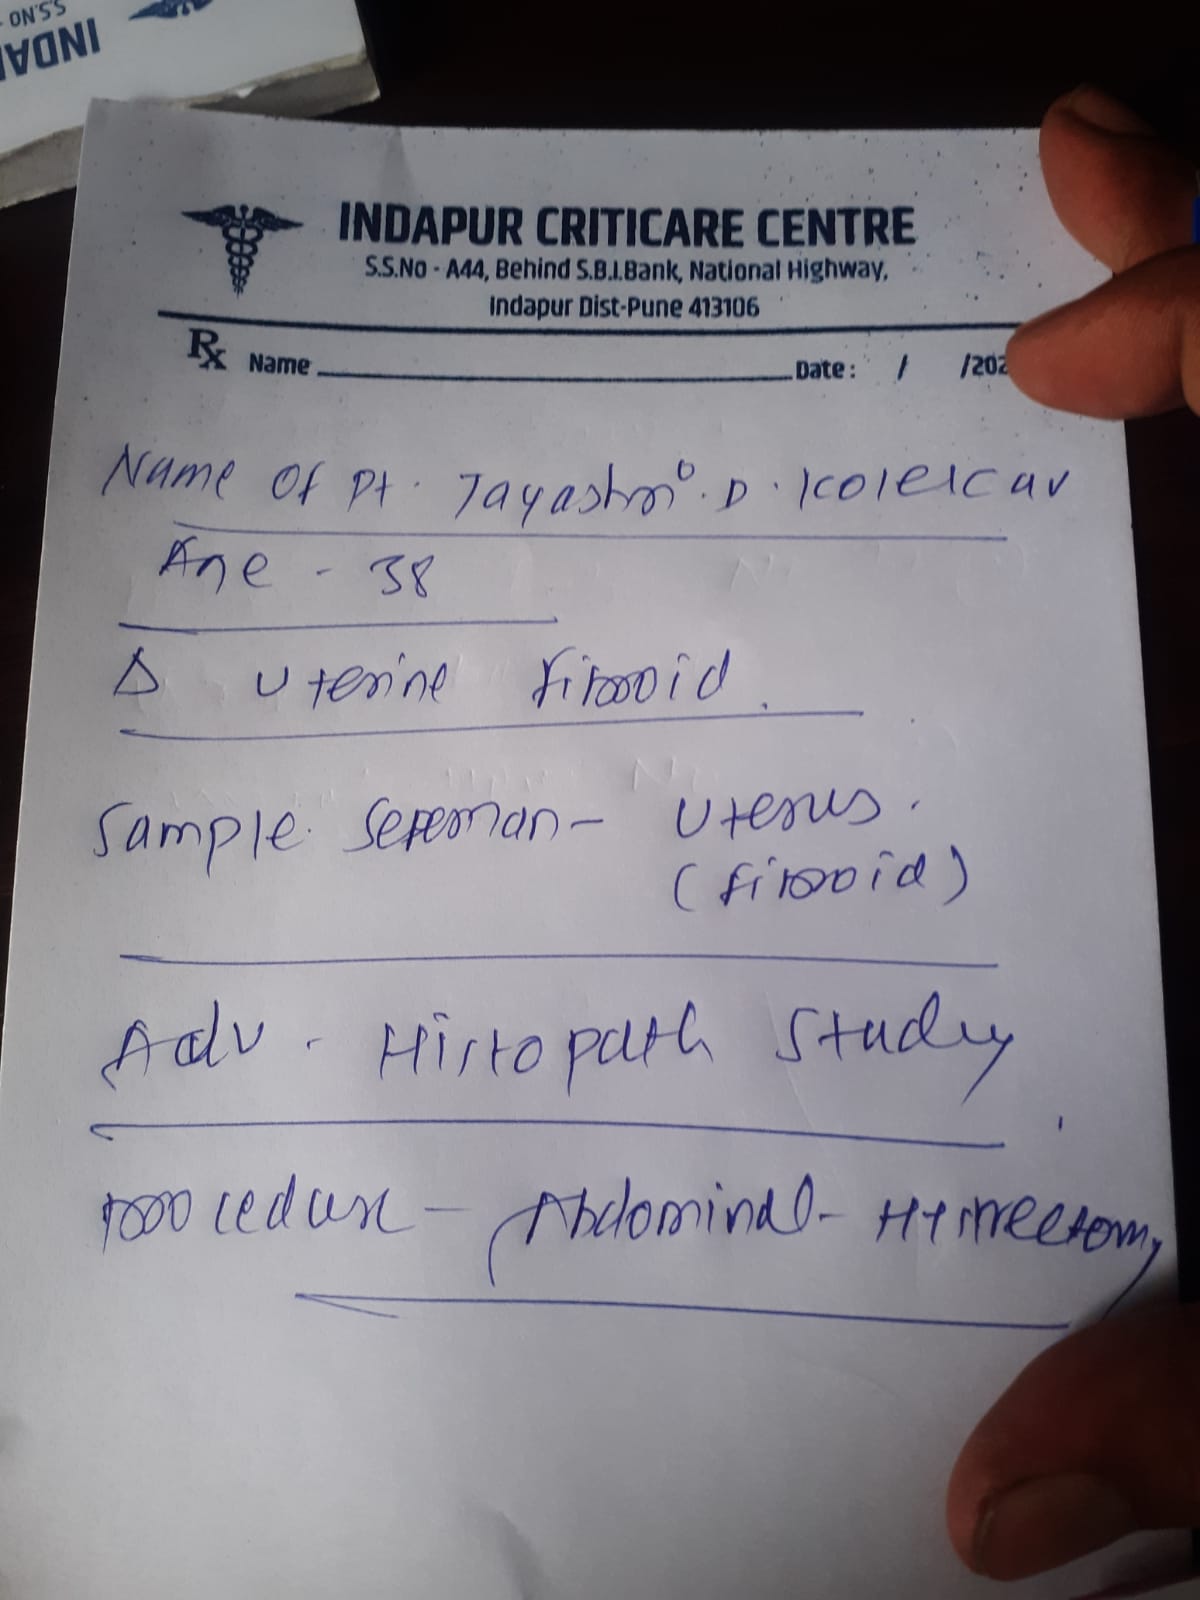 S.S.NO -
INDA
INDAPUR CRITICARE CENTRE
S.S.No - A44, Behind S.B.I.Bank, National Highway,
Indapur Dist-Pune 413106
Rx Name Date: / /202
Name of Pt. Jayashri. D. Kolekar
Age - 38
Δ Uterine Fibroid.
Sample. - Uterus.
(fibroid)
Adv - Histopath Study
Procedure - Abdominal -